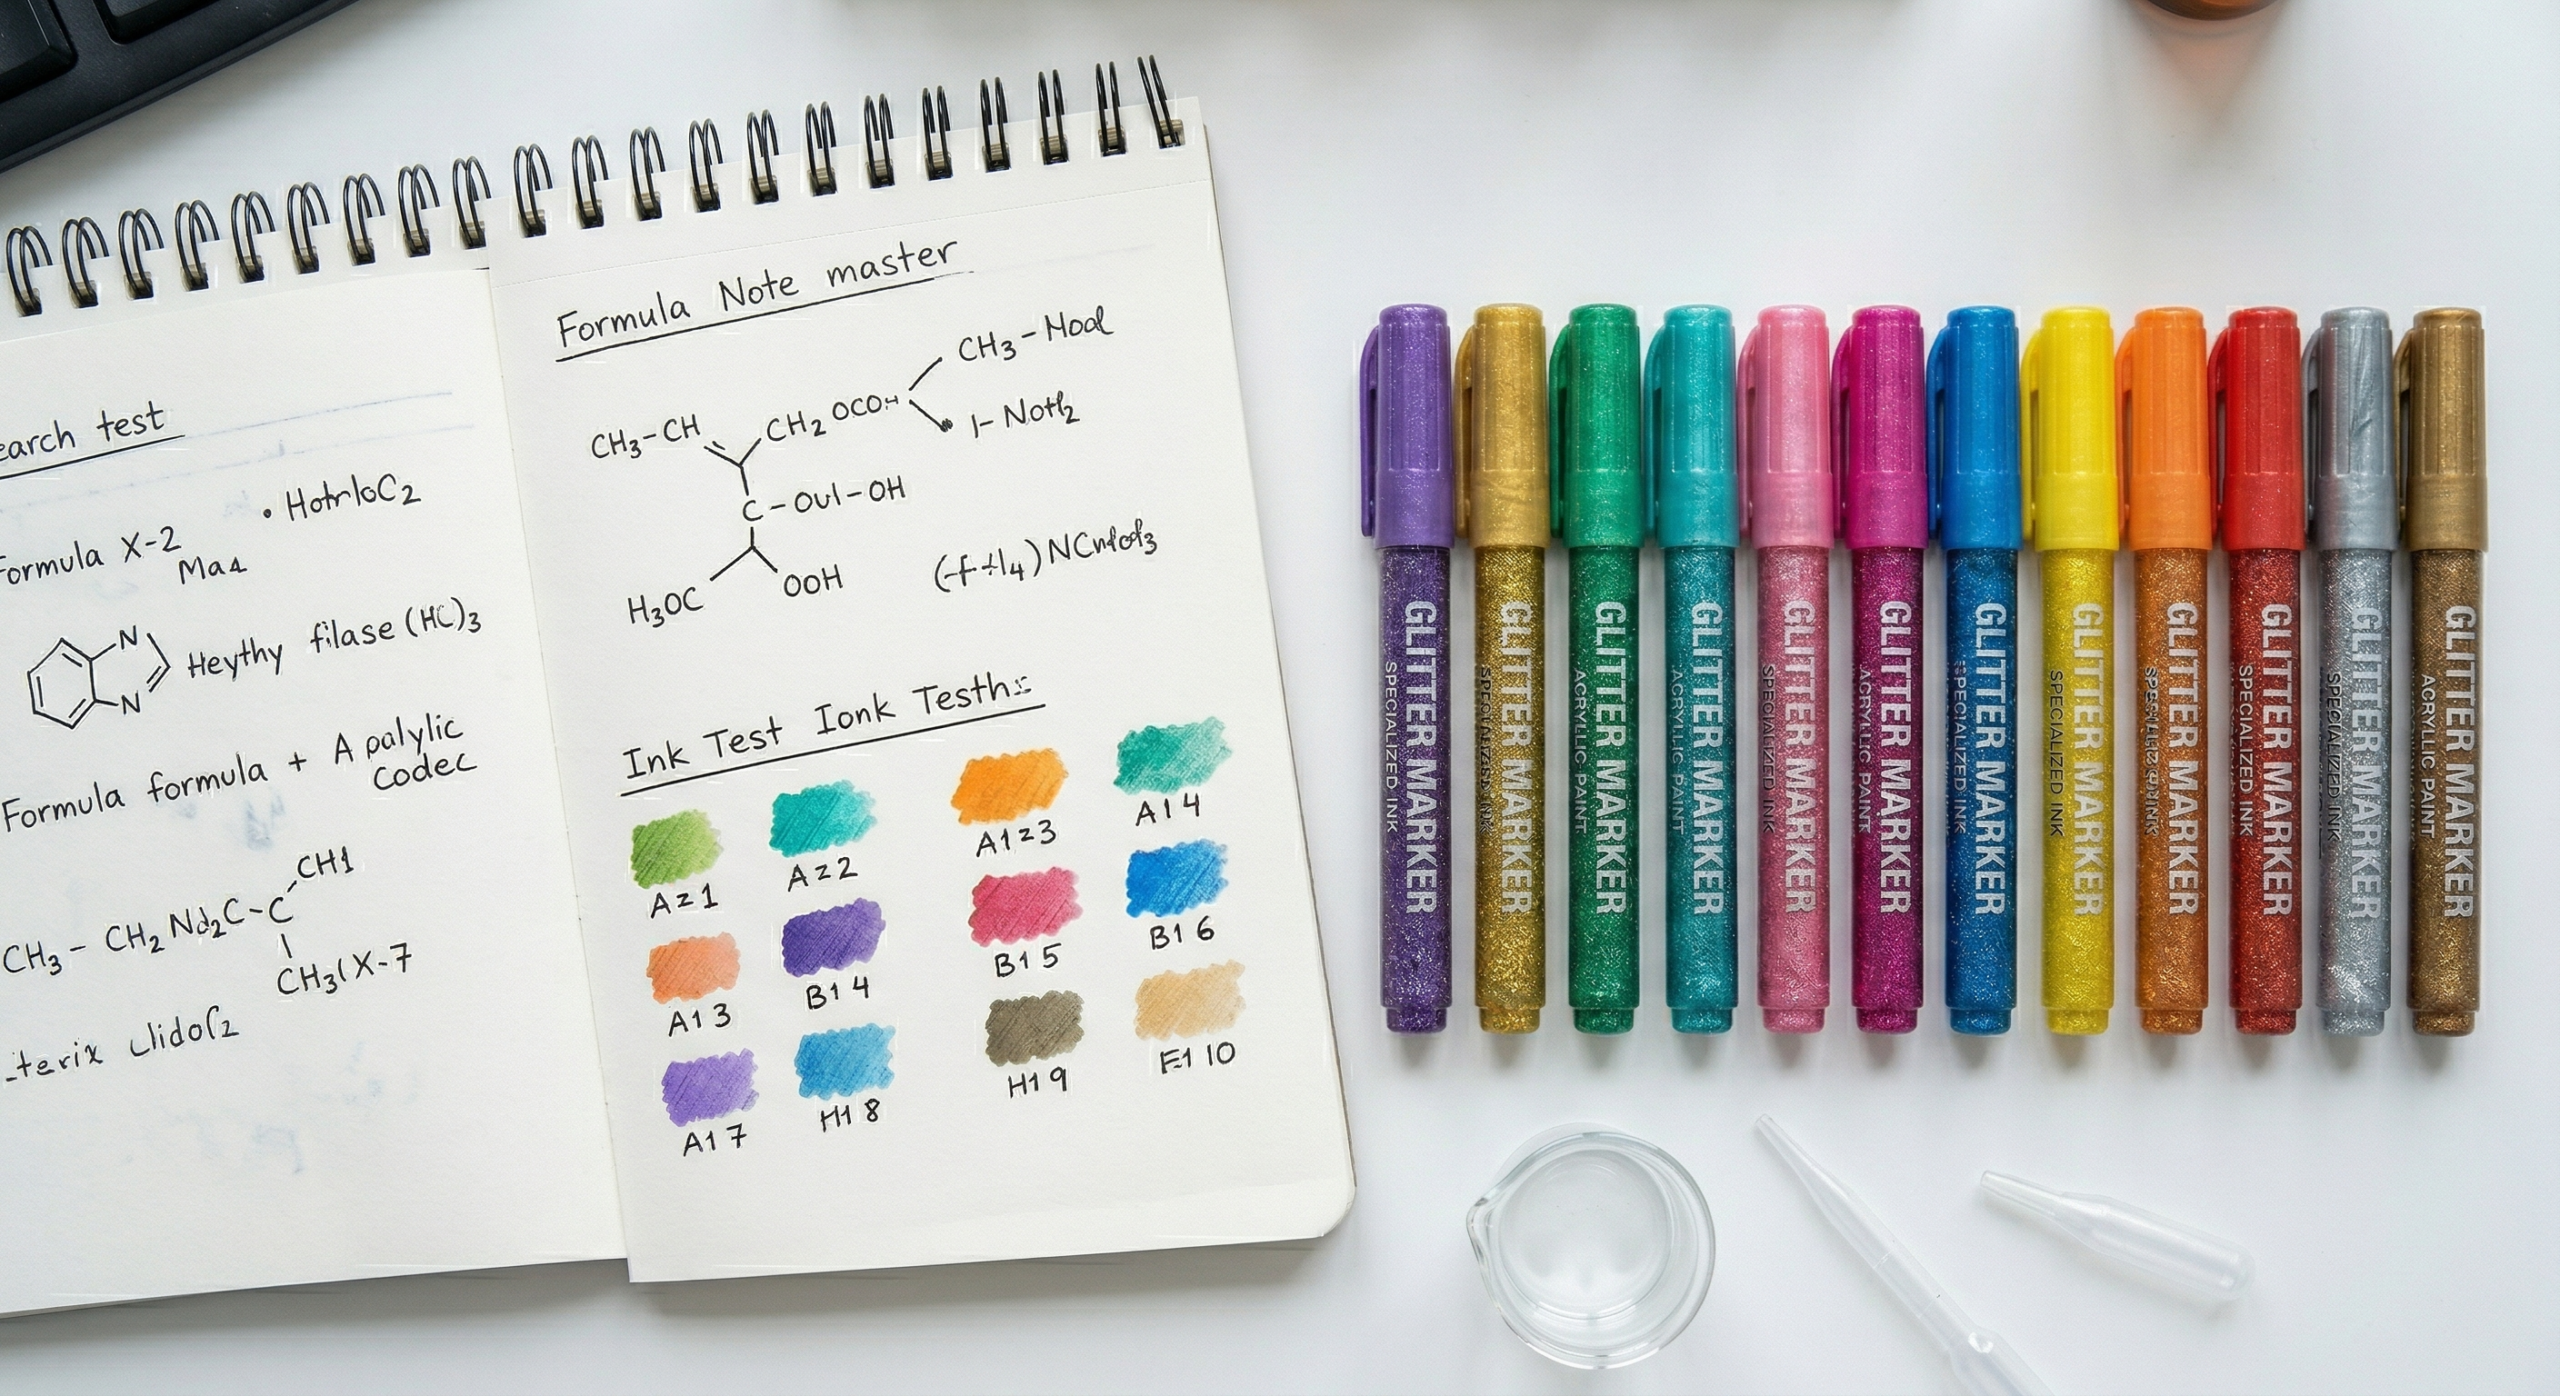 earch test
Formula X-2
Ma4
N
N
Heythy filase (HC)3
Formula formula + A palylic
codec
CH1
CH3 - CH2 Nd2C-C
CH3(X-7
Formula Note master
CH3-CH
CH2 OCOH
C-OUI-OH
H3OC
OOH
Ink Test Ionk Testh
Az1
Az2
A1z3
A14
A13
B14
B15
B16
A17
H18
H19
E110
GLITTER MARKER
SPECIALIZED INK
GLITTER MARKER
GLITTER MARKER
ACRYLLIC PAINT
GLITTER MARKER
ACRYLLIC PAINT
GLITTER MARKER
SPECIALIZED INK
GLITTER MARKER
ACRYLLIC PAINT
GLITTER MARKER
SPECIALIZED INK
GLITTER MARKER
SPECIALIZED INK
GLITTER MARKER
GLITTER MARKER
SPECIALIZED INK
GLITTER MARKER
SPECIALIZED INK
GLITTER MARKER
ACRYLLIC PAINT